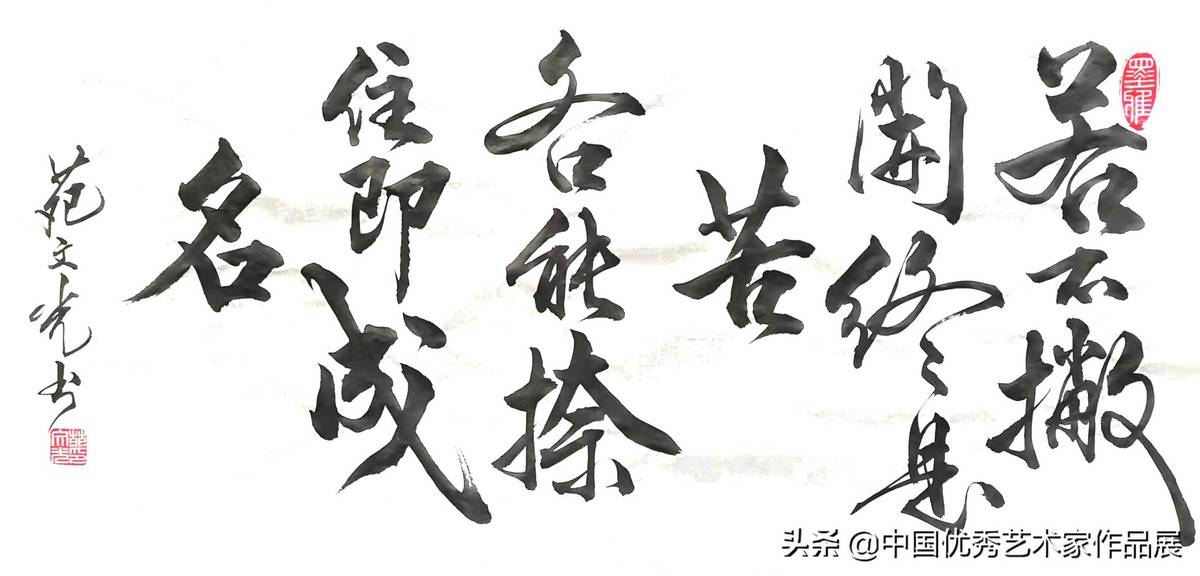 墨雅
若不撇
開終是
苦
各能捺
住即成
名
苑文光书
头条 @中国优秀艺术家作品展